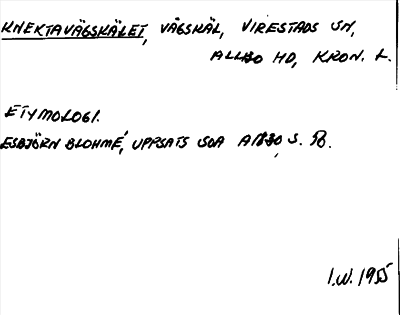 KNEKTAVÄGSKÄLET, VÄGSKÄL, VIRESTADS SN,
ALLBO HD, KRON. L.
ETYMOLOGI.
ESBJÖRN BLOHMÉ, UPPSATS SOA ALLBO, S.
I.W. 1955